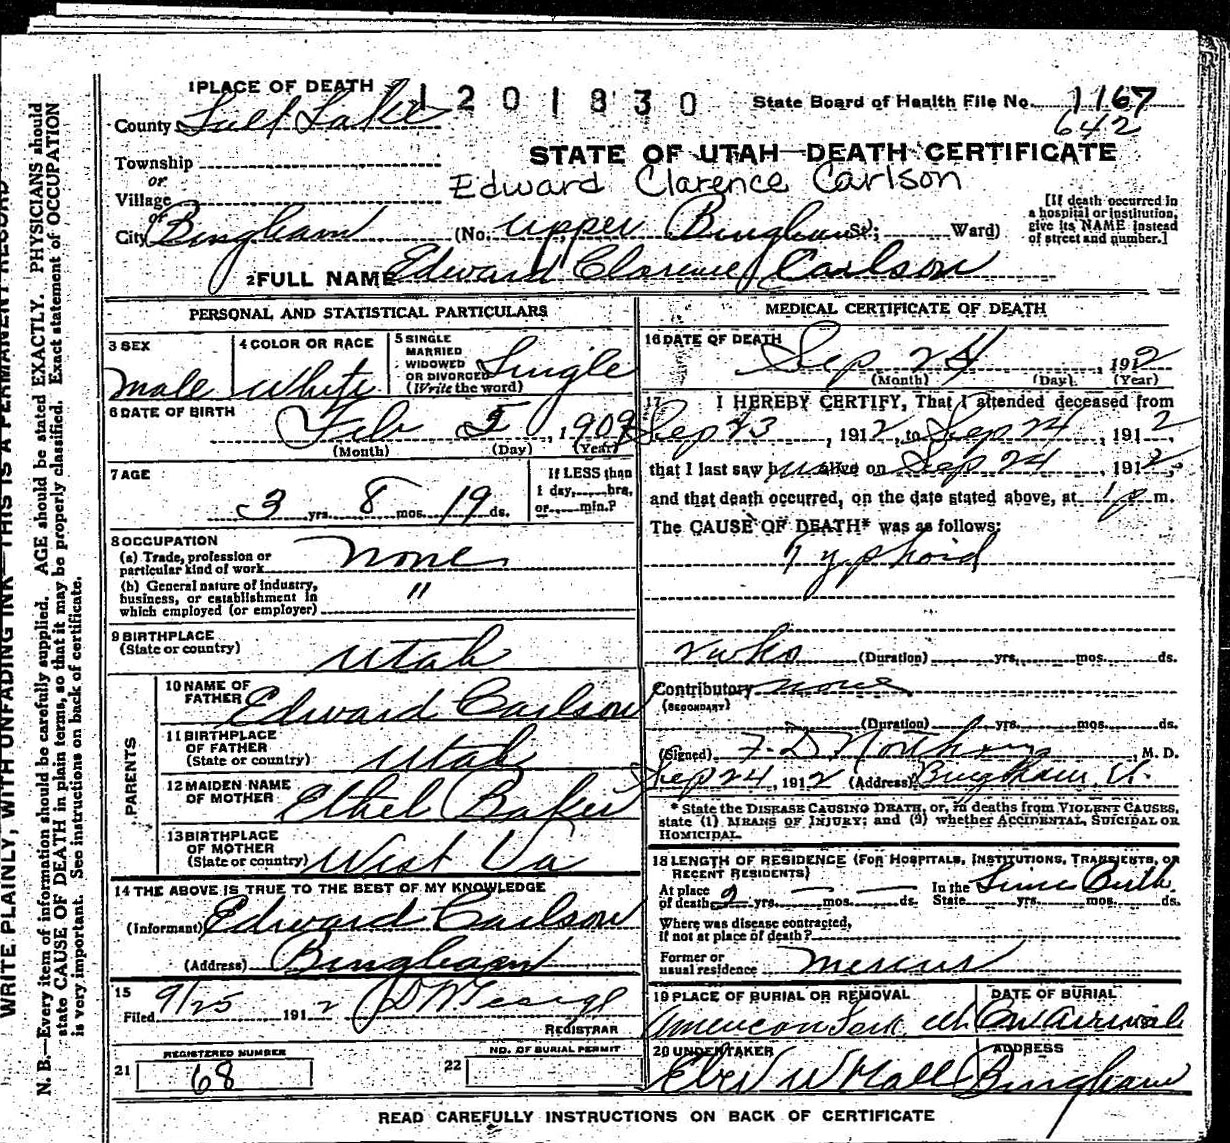 1 PLACE OF DEATH 1201830 State Board of Health File No. 1167
County Salt Lake 642
STATE OF UTAH—DEATH CERTIFICATE
Township
or
Village
Edward Clarence Carlson
or
City Bingham (No. Upper Bingham St.; Ward)
[If death occurred in
a hospital or institution,
give its NAME instead
of street and number.]
2 FULL NAME Edward Clarence Carlson
PERSONAL AND STATISTICAL PARTICULARS
3 SEX
male
4 COLOR OR RACE
White
5 SINGLE
MARRIED
WIDOWED
OR DIVORCED
(Write the word)
Single
6 DATE OF BIRTH
Feb 5, 1909
(Month) (Day) (Year)
7 AGE
3 yrs. 8 mos. 19 ds.
If LESS than
1 day,......hrs.
or......min.?
8 OCCUPATION
(a) Trade, profession or
particular kind of work none
(b) General nature of industry,
business, or establishment in
which employed (or employer) "
9 BIRTHPLACE
(State or country) Utah
PARENTS
10 NAME OF
FATHER Edward Carlson
11 BIRTHPLACE
OF FATHER
(State or country) Utah
12 MAIDEN NAME
OF MOTHER Ethel Baker
13 BIRTHPLACE
OF MOTHER
(State or country) West Va
14 THE ABOVE IS TRUE TO THE BEST OF MY KNOWLEDGE
(Informant) Edward Carlson
(Address) Bingham
15
Filed 9/25 1912
REGISTRAR
REGISTERED NUMBER
21 68
NO. OF BURIAL PERMIT
22
MEDICAL CERTIFICATE OF DEATH
16 DATE OF DEATH
Sep 24, 1912
(Month) (Day) (Year)
17 I HEREBY CERTIFY, That I attended deceased from
Sep 23, 1912, to Sep 24, 1912,
that I last saw him alive on Sep 24, 1912,
and that death occurred, on the date stated above, at 1 p m.
The CAUSE OF DEATH* was as follows:
Typhoid
2 wks (Duration) yrs. mos. ds.
Contributory none
(SECONDARY)
(Duration) yrs. mos. ds.
(Signed) F. D. M. D.
Sep 24, 1912 (Address) Bingham, Ut.
* State the DISEASE CAUSING DEATH, or, in deaths from VIOLENT CAUSES,
state (1) MEANS OF INJURY; and (2) whether ACCIDENTAL, SUICIDAL OR
HOMICIDAL.
18 LENGTH OF RESIDENCE (FOR HOSPITALS, INSTITUTIONS, TRANSIENTS, OR
RECENT RESIDENTS)
At place
of death 2 yrs. — mos. — ds. In the
State Since Birth yrs. mos. ds.
Where was disease contracted,
if not at place of death?
Former or
usual residence Mercur
19 PLACE OF BURIAL OR REMOVAL
American Fork
DATE OF BURIAL
On Arrival
20 UNDERTAKER
Eber W Hall
ADDRESS
Bingham
READ CAREFULLY INSTRUCTIONS ON BACK OF CERTIFICATE
WRITE PLAINLY, WITH UNFADING INK—THIS IS A PERMANENT RECORD
N. B.—Every item of information should be carefully supplied. AGE should be stated EXACTLY. PHYSICIANS should
state CAUSE OF DEATH in plain terms, so that it may be properly classified. Exact statement of OCCUPATION
is very important. See instructions on back of certificate.